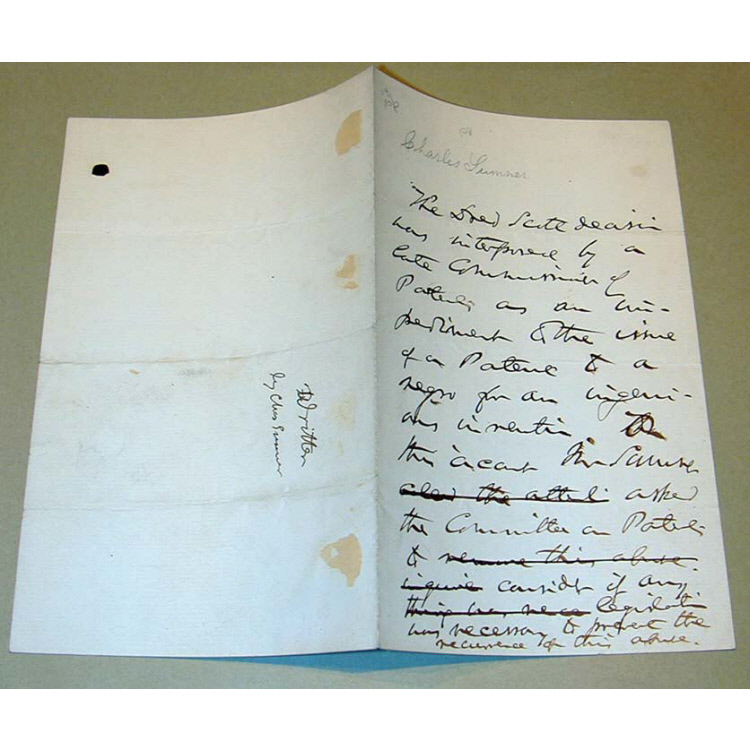 Written
by Chas Sumner
Charles Sumner
The Dred Scott decision
was interposed by a
late Commissioner of
Patents as an im-
pediment to the issue
of a Patent to a
negro for an ingeni-
ous invention
this account Mr Sumner
asked
the Committee on Patents
to remove this abuse.
inquire consider if any
thing was nece legislation
was necessary to prevent the
recurrence of this abuse.